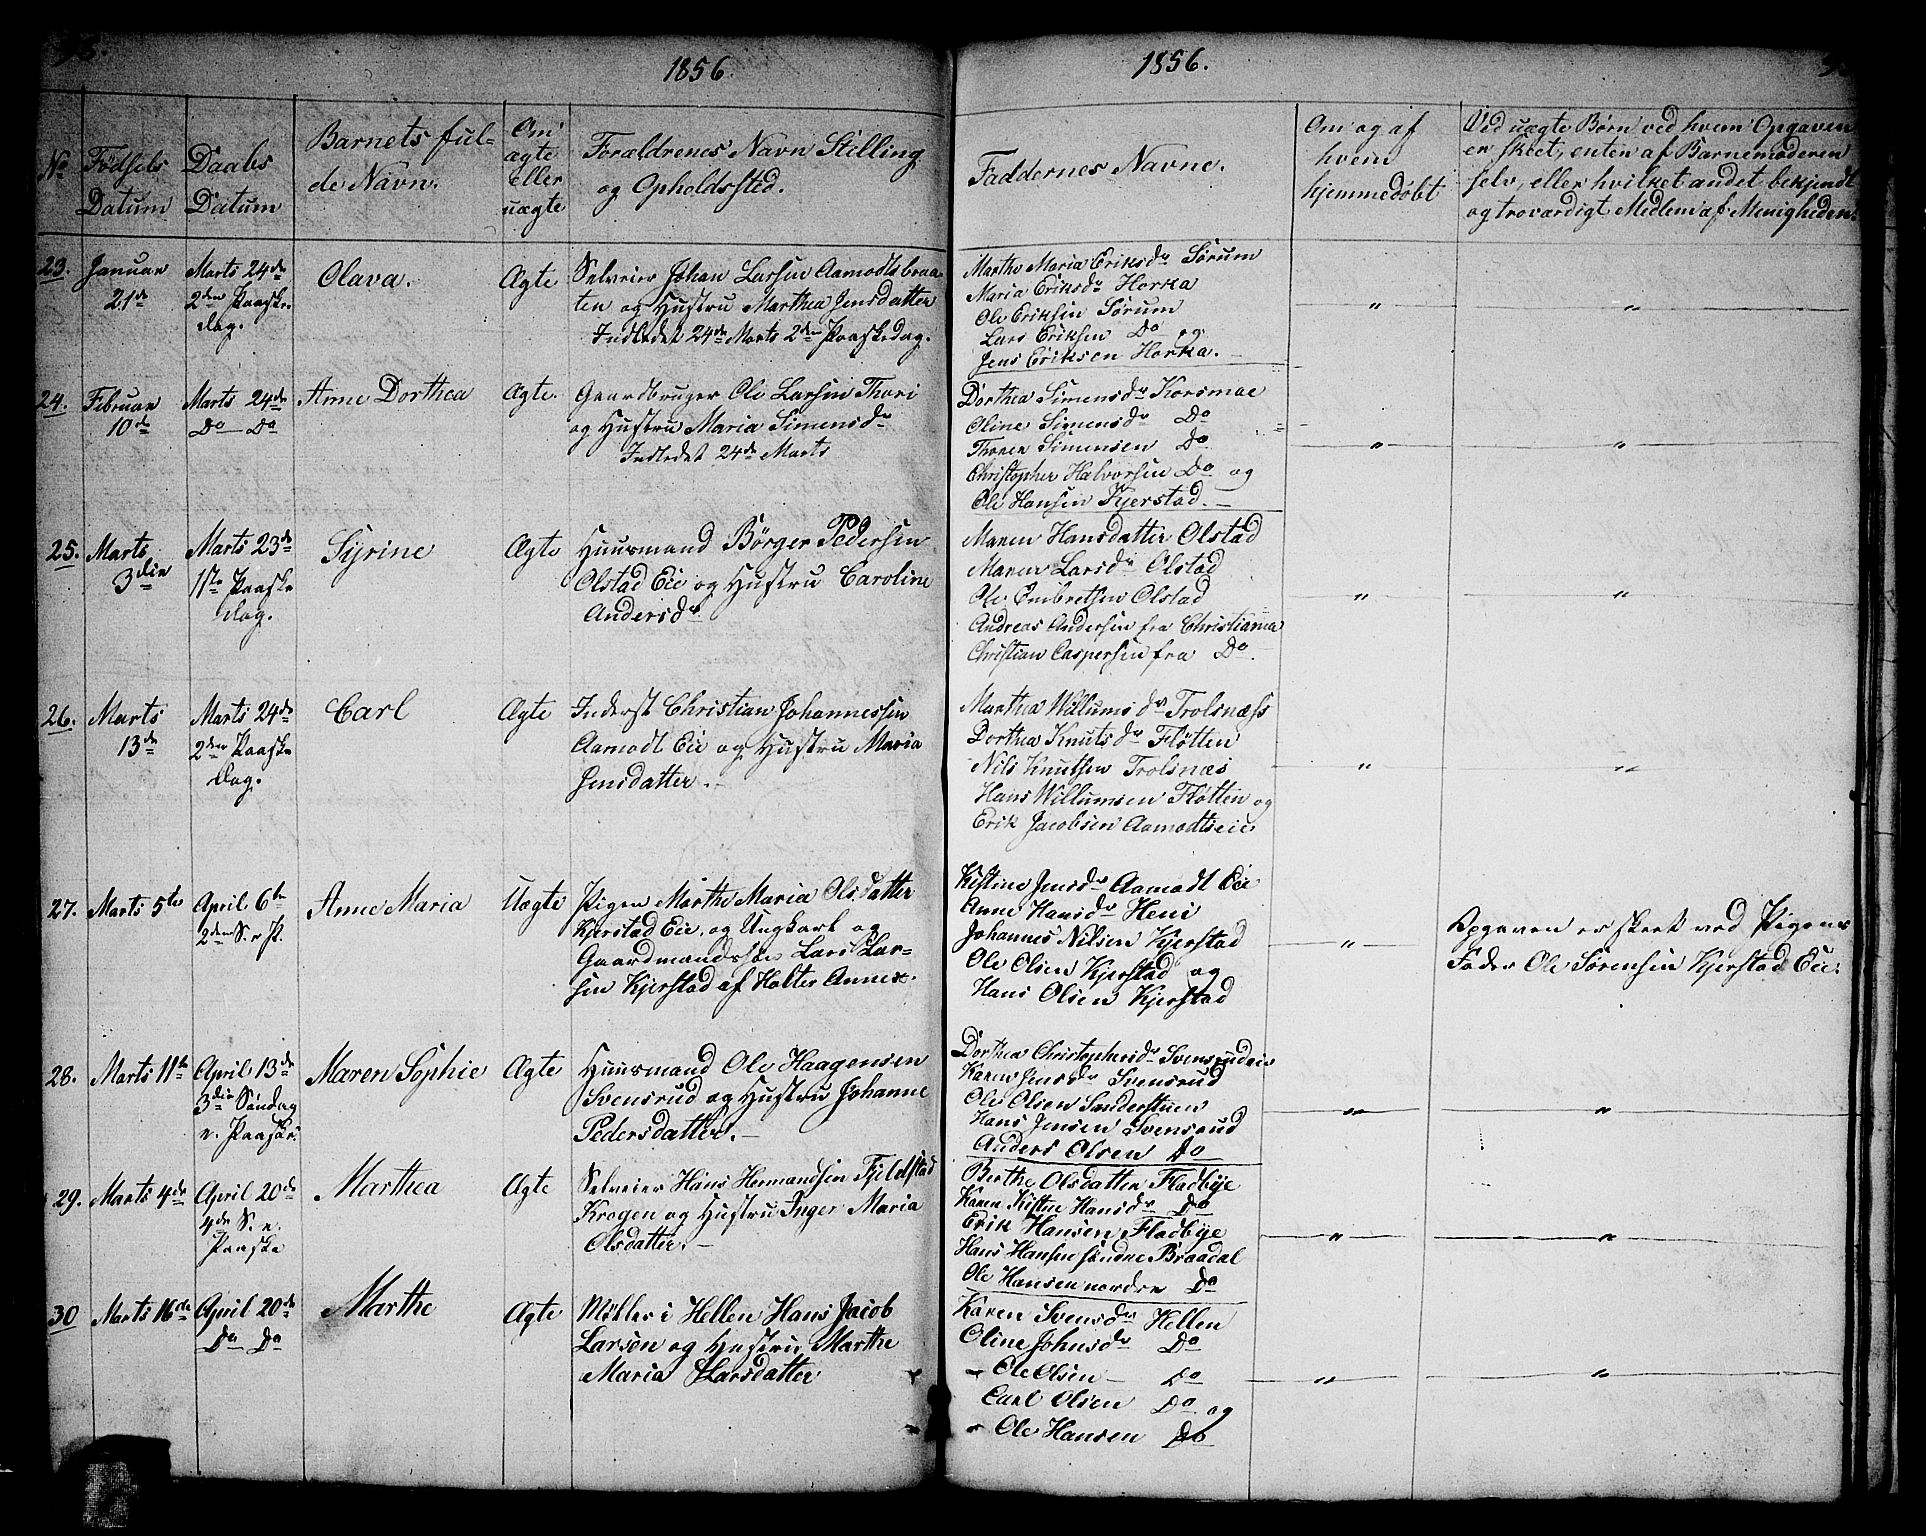 1856.
1856.
No
Fødsels
Datum
Daabs
Datum
Barnets ful-
de Navn.
Om
ægte
eller
uægte
Forældrenes Navn Stilling
og Opholdssted.
Faddernes Navne.
Om og af
hvem
hjemmedøbt
Ved uægte Børn ved hvem Opgaven
er skeet, enten af Barnemoderen
selv, eller hvilket andet bekjendt
og troværdigt Medlem af Menigheden.
23.
Januar
21de
Marts 24de
2den Paaske
dag.
Olava.
Ægte
Selveier Johan Larsen Aamodtsbraa
ten og Hustru Marthea Jensdatter
Indledet 24de Marts 2den Paaskedag.
Marthe Maria Eriksdr Sørum
Maria Eriksdr Horka
Ole Eriksen Sørum
Lars Eriksen Do og
Jens Eriksen Horka.
"
"
24.
Februar
10de
Marts 24de
Do Do
Anne Dorthea
Ægte.
Gaardbruger Ole Larsen Thori
og Hustru Maria Simensdr
Indledet 24de Marts
Dorthea Simensdr Korsmoe
Oline Simensdr Do
Thorer Simensen Do
Christopher Halvorsen Do og
Ole Hansen Kjerstad.
"
"
25.
Marts
3die
Marts 23de
1ste Paaske
dag.
Syrine
Ægte
Huusmand Børger Pedersen
Olstad Eie og Hustru Caroline
Andersdr
Maren Hansdatter Olstad
Maren Larsdr Olstad
Ole Embretsen Olstad
Andreas Andersen fra Christiania
Christian Caspersen fra Do
"
"
26.
Marts
13de
Marts 24de
2den Paaske
dag.
Carl
Ægte
Inderst Christian Johannessen
Aamodt Eie og Hustru Maria
Jensdatter.
Marthea Willumsdr Trolsnæss
Dorthea Knutsdr Fløtten
Nils Knutsen Trolsnæs
Hans Willumsen Fløtten og
Erik Jacobsen Aamodtseie
"
"
27.
Marts 5te
April 6te
2den S. e. P.
Anne Maria
Uægte
Pigen Marthe Maria Olsdatter
Kjerstad Eie, og Ungkarl og
Gaardmandssøn Lars Lar-
sen Kjerstad af Holter Annex.
Kistine Jensdr Aamodt Eie
Anne Hansdr Heni
Johannes Nilsen Kjerstad
Ole Olsen Kjerstad og
Hans Olsen Kjerstad
"
Opgaven er skeet ved Pigens
Fader Ole Sørensen Kjerstad Eie.
28.
Marts 11te
April 13de
3die Søndag
e. Paaske.
Maren Sophie
Ægte
Huusmand Ole Haagensen
Svensrud og Hustru Johanne
Pedersdatter.
Dorthea Christophersdr Svensrudeie
Karen Jensdr Svensrud
Ole Olsen Sanderstuen
Hans Jensen Svensrud
Anders Olsen Do
"
"
29.
Marts 4de
April 20de
4de S. e.
Paaske
Marthea
Ægte
Selveier Hans Hermandsen Fjeldstad
Krogen og Hustru Inger Maria
Olsdatter.
Berthe Olsdatter Fladbye
Karen Kistine Hansdr Do
Erik Hansen Fladbye
Hans Hansen søndre Braadal
Ole Hansen nordre Do
"
"
30
Marts 16de
April 20de
Do Do
Marthe
Ægte
Møller i Hellen Hans Jacob
Larsen og Hustru Marthe
Maria Larsdatter
Karen Svensdr Hellen
Oline Johnsdr Do
Ole Olsen Do
Carl Olsen Do og
Ole Hansen Do
"
"